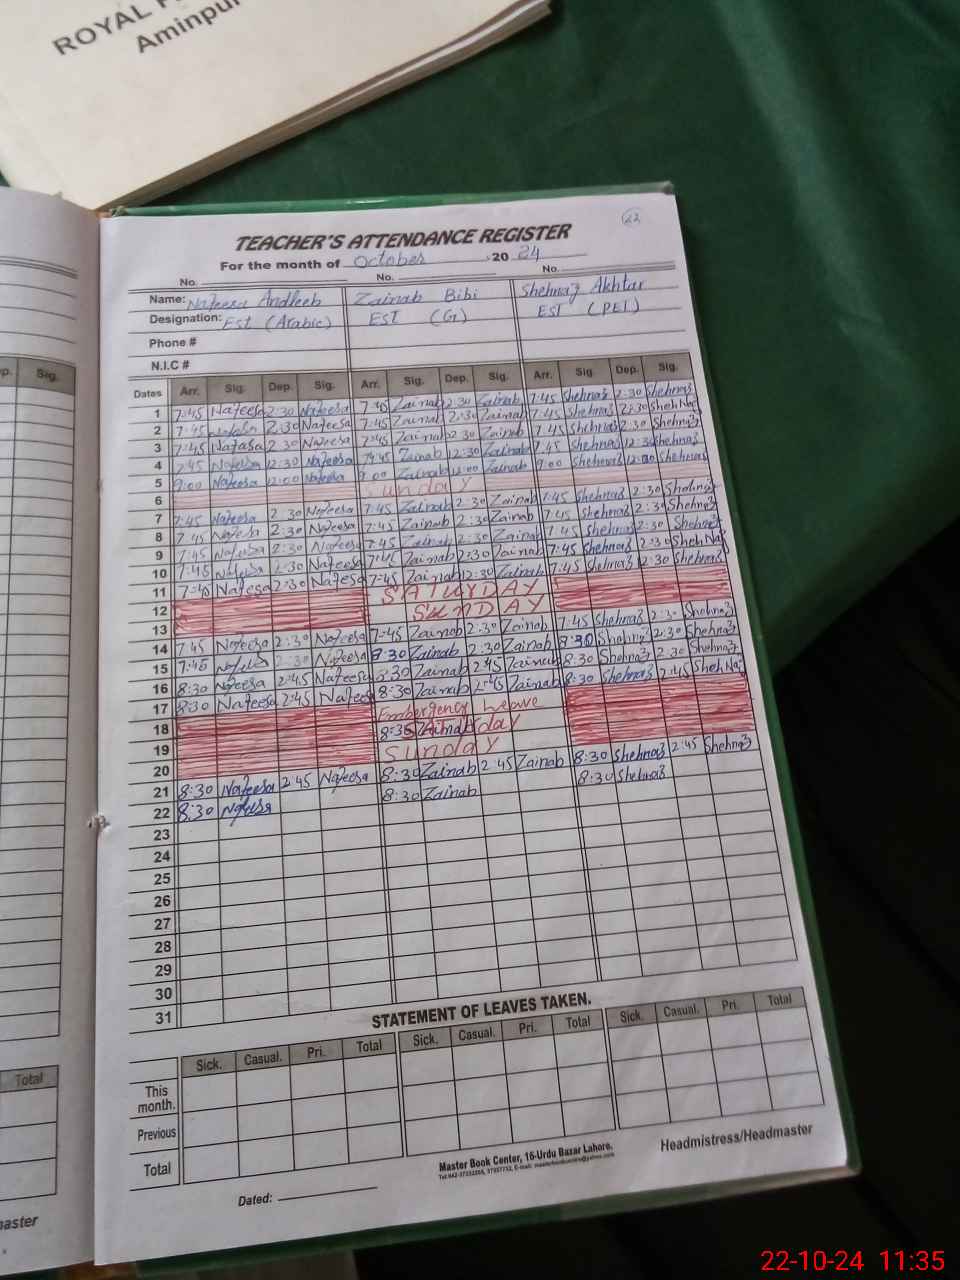 ROYAL
Aminpur
22
TEACHER'S ATTENDANCE REGISTER
For the month of October 2024
No. No. No.
Name: Nafeesa Andleeb Zainab Bibi Shehnaz Akhtar
Designation: Est (Arabic) EST (G) EST (PET)
Phone #
N.I.C #
Dates Arr. Sig. Dep. Sig. Arr. Sig. Dep. Sig. Arr. Sig. Dep. Sig.
1 7:45 Nafeesa 2:30 Nafeesa 7:45 Zainab 2:30 Zainab 7:45 Shehnaz 2:30 Shehnaz
2 7:45 Nafeesa 2:30 Nafeesa 7:45 Zainab 2:30 Zainab 7:45 Shehnaz 2:30 Shehnaz
3 7:45 Nafeesa 2:30 Nafeesa 7:45 Zainab 2:30 Zainab 7:45 Shehnaz 2:30 Shehnaz
4 7:45 Nafeesa 12:30 Nafeesa 7:45 Zainab 12:30 Zainab 7:45 Shehnaz 12:30 Shehnaz
5 9:00 Nafeesa 12:00 Nafeesa 9:00 Zainab 12:00 Zainab 9:00 Shehnaz 12:00 Shehnaz
6 Sunday
7 7:45 Nafeesa 2:30 Nafeesa 7:45 Zainab 2:30 Zainab 7:45 Shehnaz 2:30 Shehnaz
8 7:45 Nafeesa 2:30 Nafeesa 7:45 Zainab 2:30 Zainab 7:45 Shehnaz 2:30 Shehnaz
9 7:45 Nafeesa 2:30 Nafeesa 7:45 Zainab 2:30 Zainab 7:45 Shehnaz 2:30 Shehnaz
10 7:45 Nafeesa 2:30 Nafeesa 7:45 Zainab 2:30 Zainab 7:45 Shehnaz 2:30 Shehnaz
11 7:45 Nafeesa 2:30 Nafeesa 7:45 Zainab 12:30 Zainab 7:45 Shehnaz 2:30 Shehnaz
12 SATURDAY
13 SUNDAY
14 7:45 Nafeesa 2:30 Nafeesa 7:45 Zainab 2:30 Zainab 7:45 Shehnaz 2:30 Shehnaz
15 7:45 Nafeesa 2:30 Nafeesa 8:30 Zainab 2:30 Zainab 8:30 Shehnaz 2:30 Shehnaz
16 8:30 Nafeesa 2:45 Nafeesa 8:30 Zainab 2:45 Zainab 8:30 Shehnaz 2:30 Shehnaz
17 8:30 Nafeesa 2:45 Nafeesa 8:30 Zainab 2:45 Zainab 8:30 Shehnaz 2:45 Shehnaz
18 Embergency Leave
19 8:35 Zainab
20 Sunday
21 8:30 Nafeesa 2:45 Nafeesa 8:30 Zainab 2:45 Zainab 8:30 Shehnaz 2:45 Shehnaz
22 8:30 Nafeesa 8:30 Zainab 8:30 Shehnaz
23
24
25
26
27
28
29
30
31
STATEMENT OF LEAVES TAKEN.
Sick. Casual. Pri. Total Sick. Casual. Pri. Total Sick. Casual. Pri. Total
This month.
Previous
Total
Master Book Center, 16-Urdu Bazar Lahore.
Headmistress/Headmaster
Dated:
Sig.
Total
22-10-24 11:35